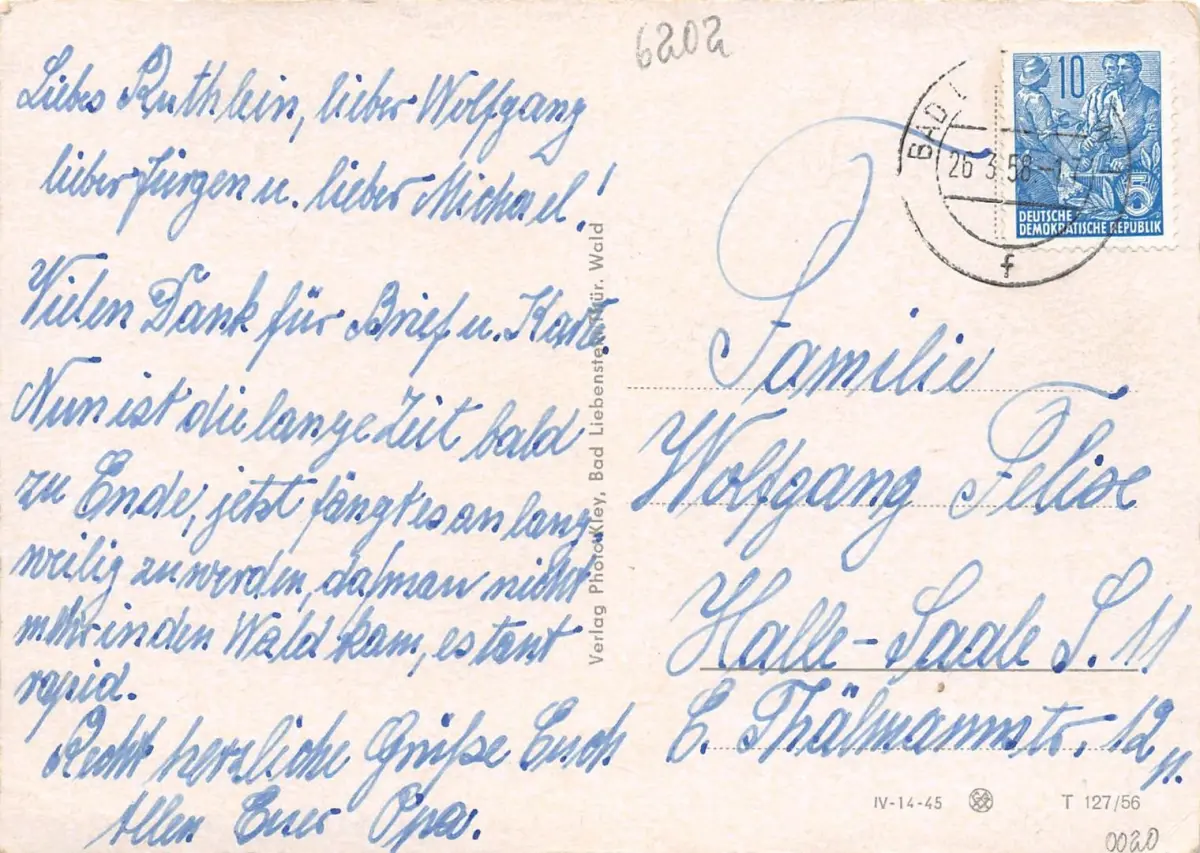 6202
Liebes Ruthlein, lieber Wolfgang
lieber Jürgen u. lieber Michael!
Vielen Dank für Brief u. Karte.
Nun ist die lange Zeit bald
zu Ende, jetzt fängt es an lang-
weilig zu werden, daß man nicht
mehr in den Wald kam, es taut
rapid.
Recht herzliche Grüße Euch
Allen Euer Opa.
Verlag Photo-Kley, Bad Liebenstein/Thür. Wald
10
5
DEUTSCHE
DEMOKRATISCHE REPUBLIK
BAD
26.3.58
f
Familie
Wolfgang
Halle-Saale S. 11
E. Thälmannstr. 12
IV-14-45
T 127/56
0020